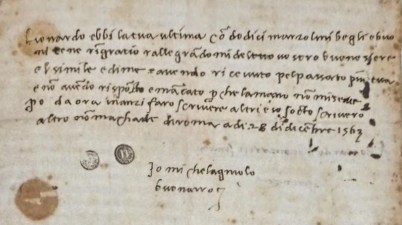 lionardo ebbi la tua ultima cō dodici marzolini begli e buo
ni te ne ringratio rallegrādomi del vostro buono essere
e l simile e di me avendo ricevuto pel passato piu tua
e nō avēdo risposto e mācato p che la mano nō mi serve
po da ora inanzi faro scrivere altri e io socto scrivero
altro nō m achade di roma a di 28 di dicēbre 1563
Io michelagniolo
buonarroti